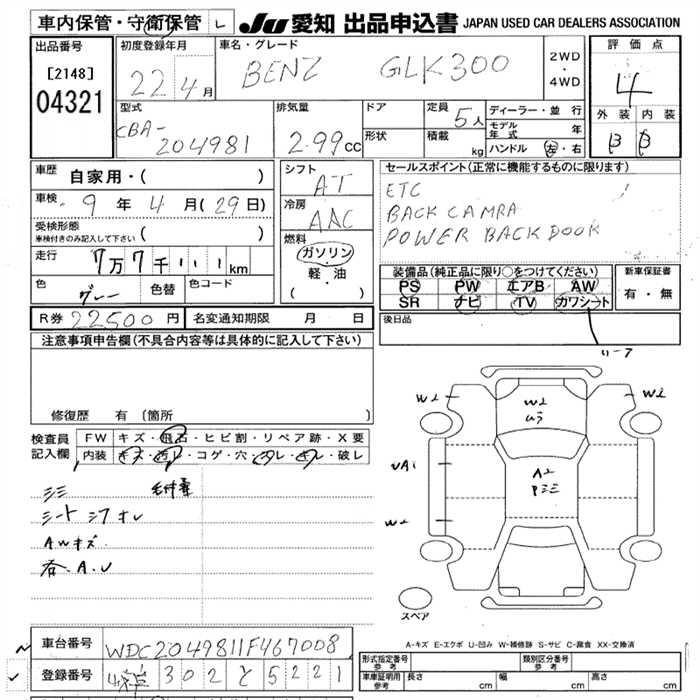 車内保管・守衛保管 レ JU 愛知 出品申込書 JAPAN USED CAR DEALERS ASSOCIATION
出品番号 初度登録年月 車名・グレード 評価点
[2148] 22 4月 BENZ GLK300 2WD・4WD 4
04321 型式 排気量 ドア 定員 5人 ディーラー・並行 外装 内装
CBA-204981 2.99cc 形状 積載 kg モデル年式 年 B B
ハンドル 左・右
車歴 自家用・( ) シフト AT セールスポイント(正常に機能するものに限ります)
車検 9年 4月(29日) 冷房 AAC ETC
受検形態 BACK CAMRA
車検付きのみ記入して下さい 燃料 POWER BACK DOOR
走行 7万7千111km ガソリン・軽・油 装備品(純正品に限り○をつけてください) 新車保証書
色 グレー 色替 色コード ( ) PS PW エアB AW 有・無
SR ナビ TV カワシート
R券 22500円 名変通知期限 月 日 後日品
注意事項申告欄(不具合内容等は具体的に記入して下さい)
修復歴 有(箇所
検査員記入欄 FW キズ・飛石・ヒビ割・リペア跡・X要
内装 キズ・汚レ・コゲ・穴・スレ・キレ・破レ
シミ
シート シワ オレ
AWキズ
各.A.U
W2 W2 W2
ムラ
UA1 A2
Pミミ
W2
スペア
A-キズ E-エクボ U-凹み W-補修跡 S-サビ C-腐食 XX-交換済
車台番号 WDC2049811F467008 形式指定番号 参考 類別区分番号 参考
登録番号 302 と 5221 車庫証明用 参考 長さ cm 幅 cm 高さ cm